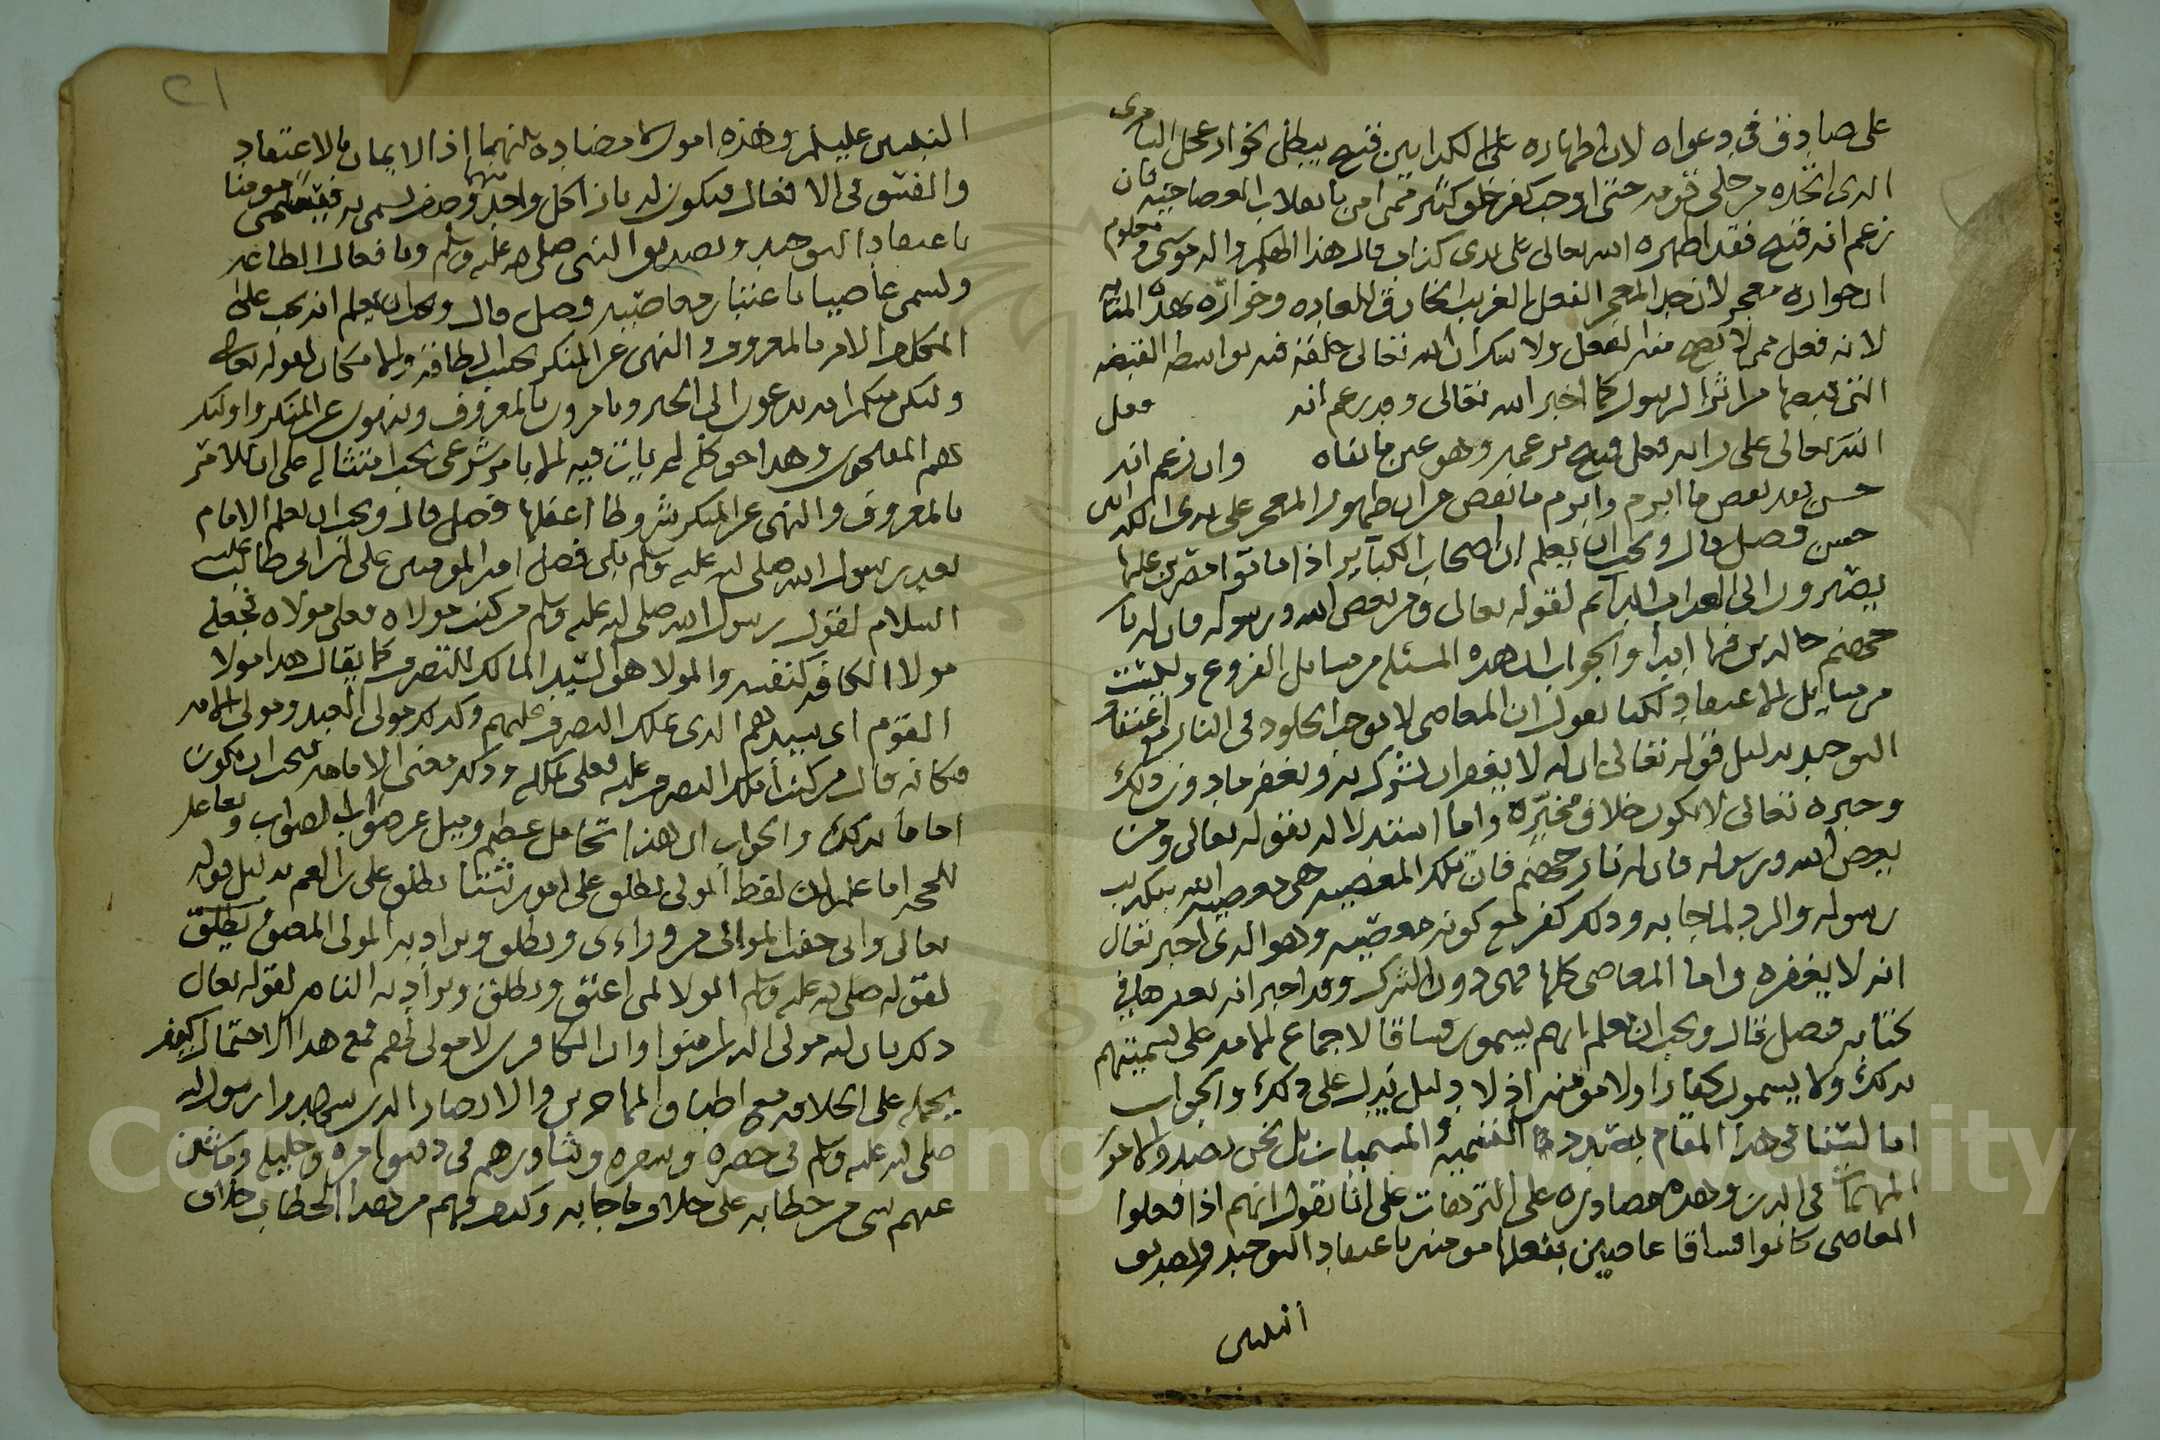 على صادق في دعواه لان اظهاره على الكذابين قبيح يبطل بخوار عجل السامري
الذي اتخذه من حلي قومه حتى اوجب كفر خلق كثير ممن امن بانقلاب العصا حيه فان
زعم انه قبيح فقد اظهره الله تعالى على يدي كذاب قال هذا المفكر واله موسى ومعلوم
ان خواره معجز لان حد المعجز الفعل الغريب الخارق للعاده وخواره بهذه المثابه
لانه فعل ممن لا يصح منه الفعل ولا ينكر ان الله تعالى خلقه فيه بواسطه القبضه
التي قبضها من اثر الرسول كما اخبر الله تعالى وقد زعم انه فعل
الله تعالى على انه فعل قبيح بزعمه وهو عين ما نفاه وان زعم انه
حسن بعد نقض ما ابرم وابرم ما نقض من ان ظهور المعجز على يدي الكذابين
حسن فصل قال ويجب ان يعلم ان اصحاب الكبآير اذا ماتوا مصرين عليها
يصيرون الى العذاب الدآيم لقوله تعالى ومن يعص الله ورسوله فان له نار
جهنم خالدين فيها ابدا والجواب ان هذه المسئله من مسايل الفروع وليست
من مسايل الاعتقاد لكنا نقول ان المعاصي لا توجب الخلود في النار مع اعتقاد
التوحيد بدليل قوله تعالى ان الله لا يغفر ان يشرك به ويغفر ما دون ذلك
وخبره تعالى لا يكون خلاف مخبره واما استدلاله بقوله تعالى ومن
يعص الله ورسوله فان له نار جهنم فان تلك المعصيه هي معصية الله بتكذيب
رسوله والرد لما جا به وذلك كفر مع كونه معصيه وهو الذي اخبر تعالى
انه لا يغفره واما المعاصي كلها فهي دون الشرك وقد اخبر انه يغفرها في
كتابه فصل قال ويجب ان يعلم انهم يسمون فساقا لاجماع الامه على تسميتهم
بذلك ولا يسمون كفارا ولا مومنين اذ لا دليل يدل على ذلك والجواب
انا لسنا في هذا المقام بصدد التسميه والمسميات بل نحن بصدد الامور
المهمات في الدين وهذه مصادره على الترهات على انا نقول انهم اذا فعلوا
المعاصي كانوا فساقا عاصين بفعلها مومنين باعتقاد التوحيد وتصديق
النبيين
٢١
النبيين عليهم وهذه امور لا مضاده بينهما اذ الايمان بالاعتقاد
والفسق في الافعال فيكون له بازا كل واحد منهما وصف يسمى به فيسمى مومنا
باعتقاد التوحيد وتصديق النبي صلى الله عليه وسلم وبافعال الطاعه
ويسمى عاصيا باعتبار معاصيه فصل قال ويجب ان يعلم انه يجب على
المكلف الامر بالمعروف والنهي عن المنكر بحسب الطاقه والامكان لقوله تعالى
ولتكن منكم امه يدعون الى الخير ويامرون بالمعروف وينهون عن المنكر واولئك
هم المفلحون وهذا حق كله لم يات فيه الا بامر شرعي يجب امتثاله على ان للامر
بالمعروف والنهي عن المنكر شروطا اغفلها فصل قال ويجب ان يعلم الامام
بعد رسول الله صلى الله عليه وسلم بلى فصل امير المومنين علي بن ابي طالب عليه
السلام لقول رسول الله صلى الله عليه وسلم من كنت مولاه فعلي مولاه فجعله
مولا الكافه كنفسه والمولا هو السيد المالك للتصرف كما يقال هذا مولا
القوم اي سيدهم الذي يملك التصرف عليهم وكذلك مولى العبد ومولى الامه
فكانه قال من كنت املك التصرف عليه فعلي يملكه وذلك معنى الامامه فيجب ان يكون
اماما بذلك والجواب ان هذا تحامل عظيم وميل عن صواب الصواب وتعامل
للحجه اما علم ان لفظ المولى يطلق على امور شتا يطلق على ابن العم بدليل قوله
تعالى واني خفت الموالي من وراءي ويطلق ويراد به المولى المعتق يطلق
لقوله صلى الله عليه وسلم المولا لمن اعتق ويطلق ويراد به الناصر لقوله تعالى
ذلك بان الله مولى الذين امنوا وان الكافرين لا مولى لهم فمع هذا الاحتمال كيف
يحمله على الخلافه مع اطباق المهاجرين والانصار الذين شهدوا رسول الله
صلى الله عليه وسلم في حضره وسفره وشاورهم في دقيق امره وجليله وما شذ
عنهم شي من خطابه على خلاف ما جا به وكيف فهم من هذا الخطاب خلاف